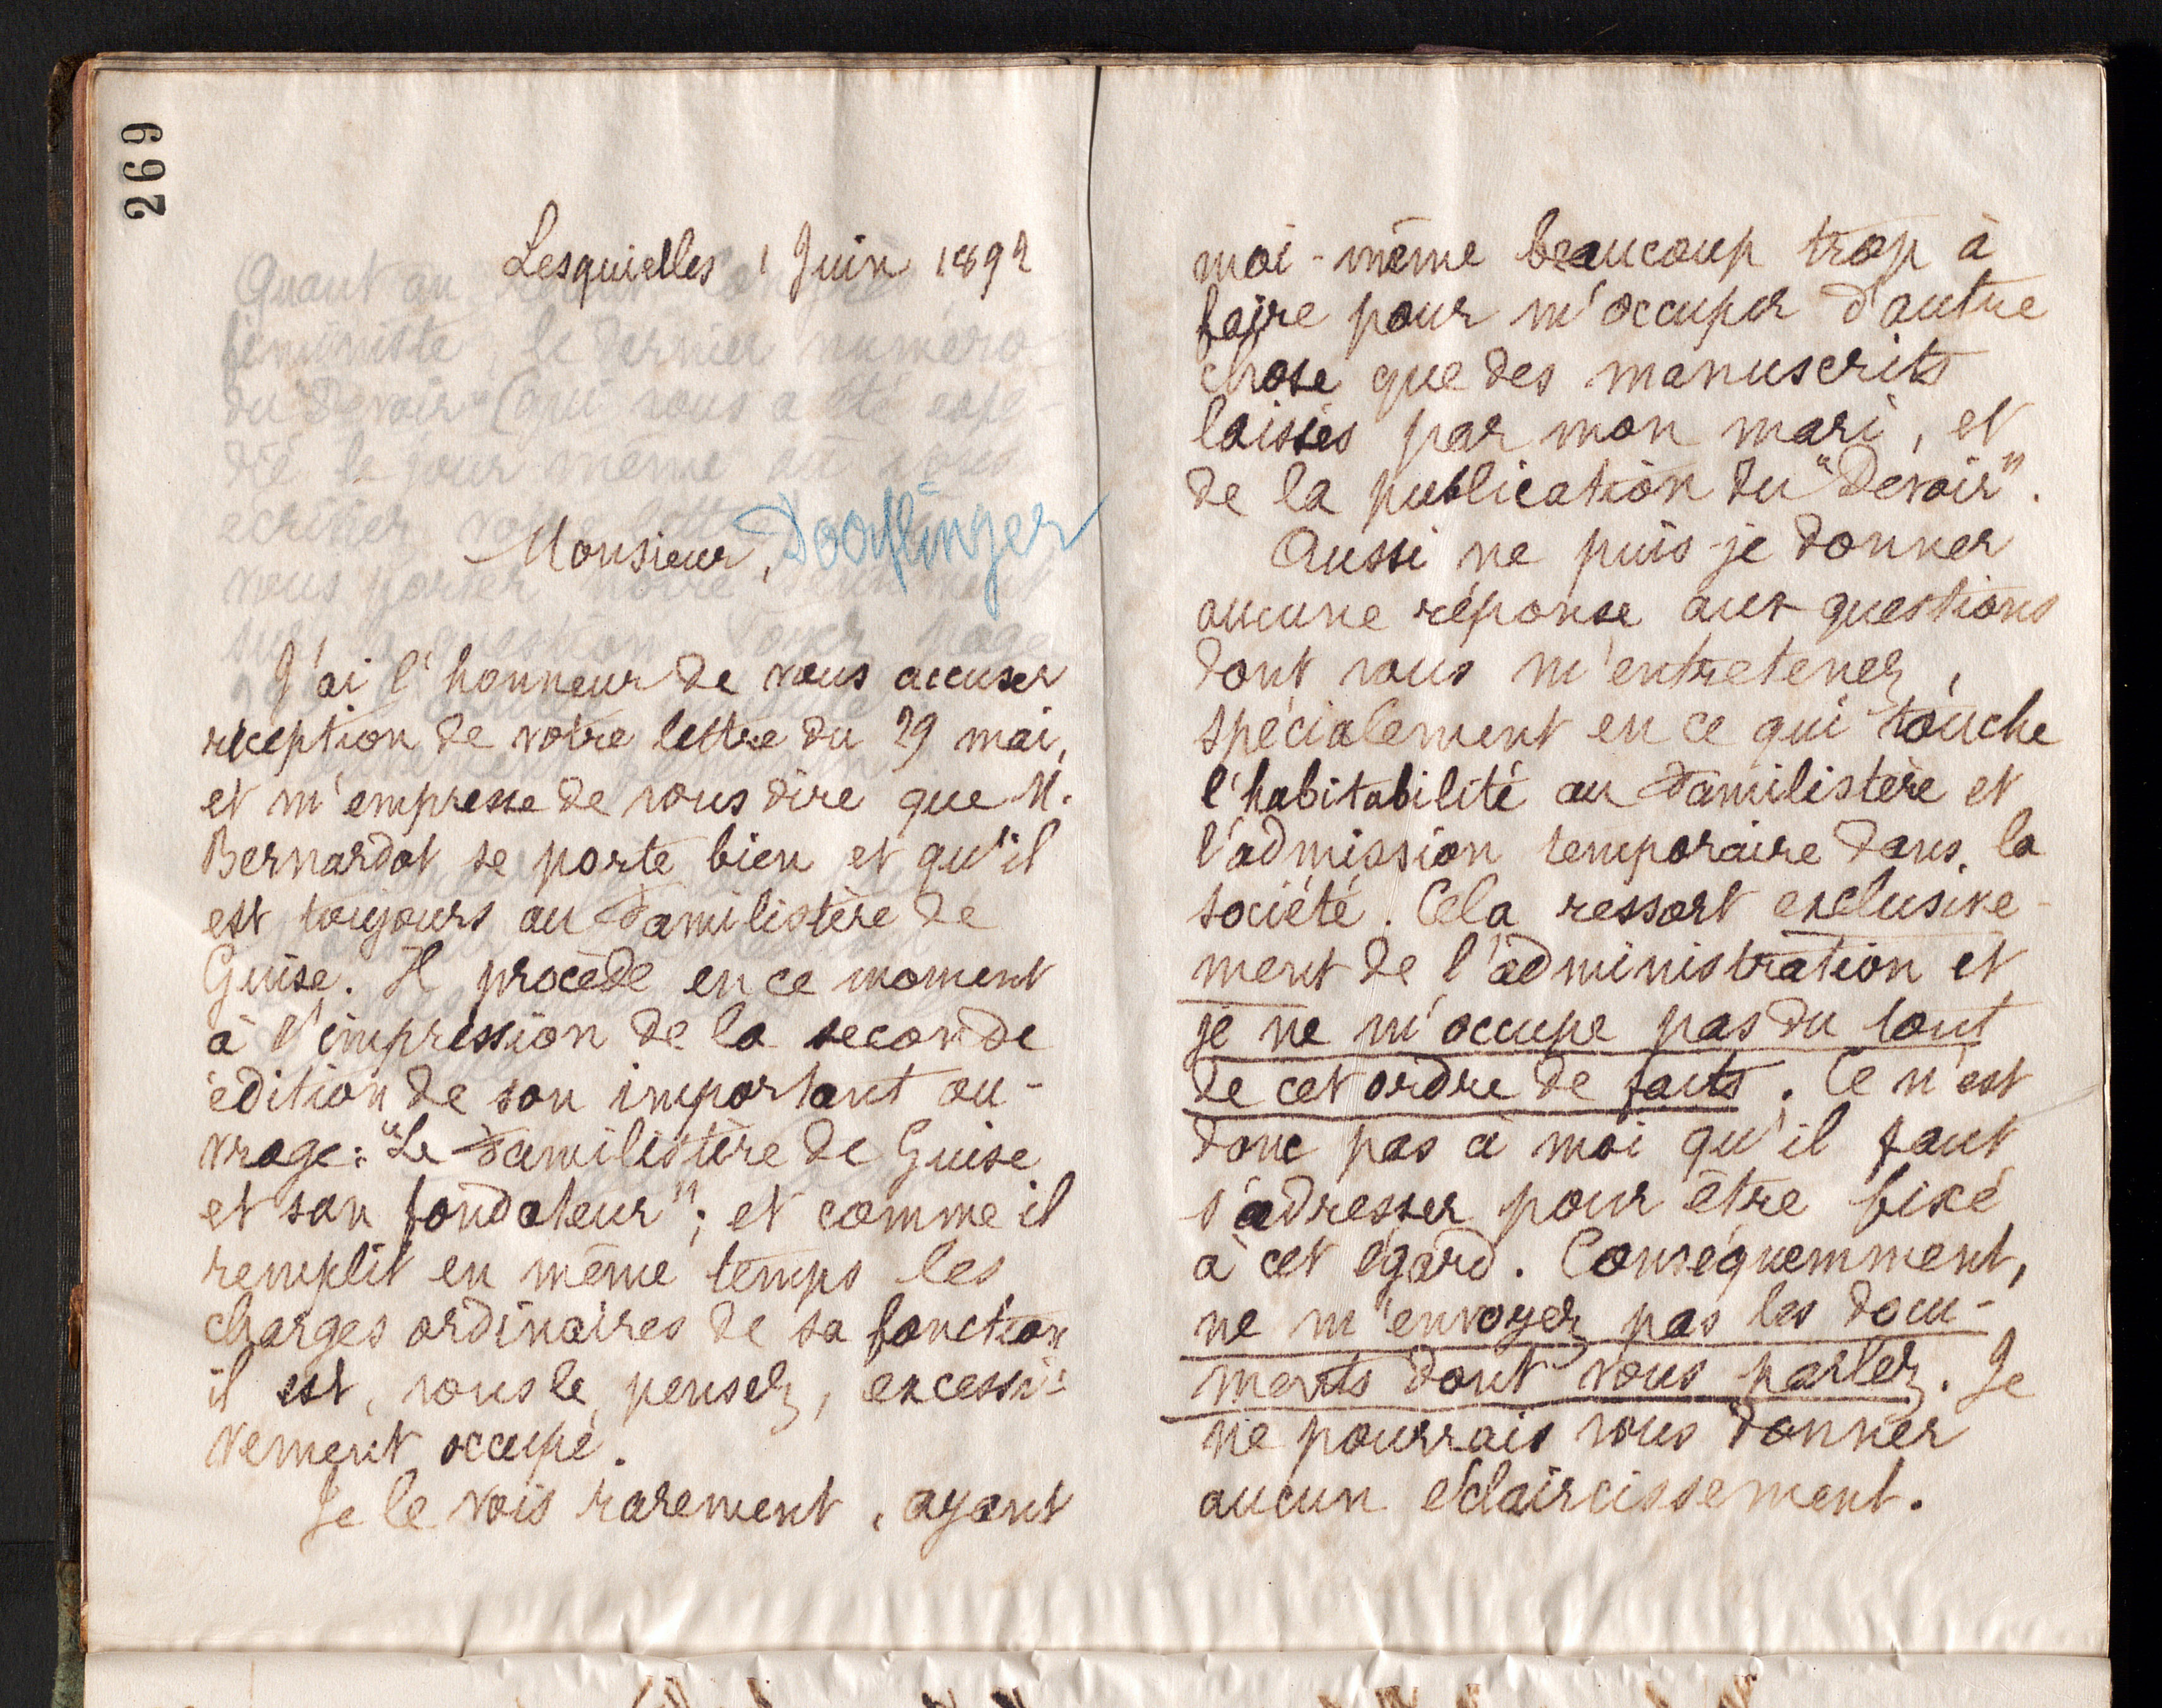 269
Lesquielles 1 Juin 1892
Monsieur,
J'ai l'honneur de vous accuser
réception de votre lettre du 29 mai,
et m'empresse de vous dire que M.
Bernardot se porte bien et qu'il
est toujours au Familistère de
Guise. Il procède en ce moment
à l'impression de la seconde
édition de son important ou-
vrage: "Le Familistère de Guise
et son fondateur"; et comme il
remplit en même temps les
charges ordinaires de sa fonction
il est, vous le pensez, excessi-
vement occupé.
Je le vois rarement, ayant
moi-même beaucoup trop à
faire pour m'occuper d'autre
chose que des manuscrits
laissés par mon mari, et
de la publication du "Devoir".
Aussi ne puis-je donner
aucune réponse aux questions
dont vous m'entretenez,
spécialement en ce qui touche
l'habitabilité au Familistère et
l'admission temporaire dans la
société. Cela ressort exclusive-
ment de l'administration et
je ne m'occupe pas du tout
de cet ordre de faits. Ce n'est
donc pas à moi qu'il faut
s'adresser pour être fixé
à cet égard. Conséquemment,
ne m'envoyez pas les docu-
ments dont vous parlez. Je
ne pourrais vous donner
aucun éclaircissement.